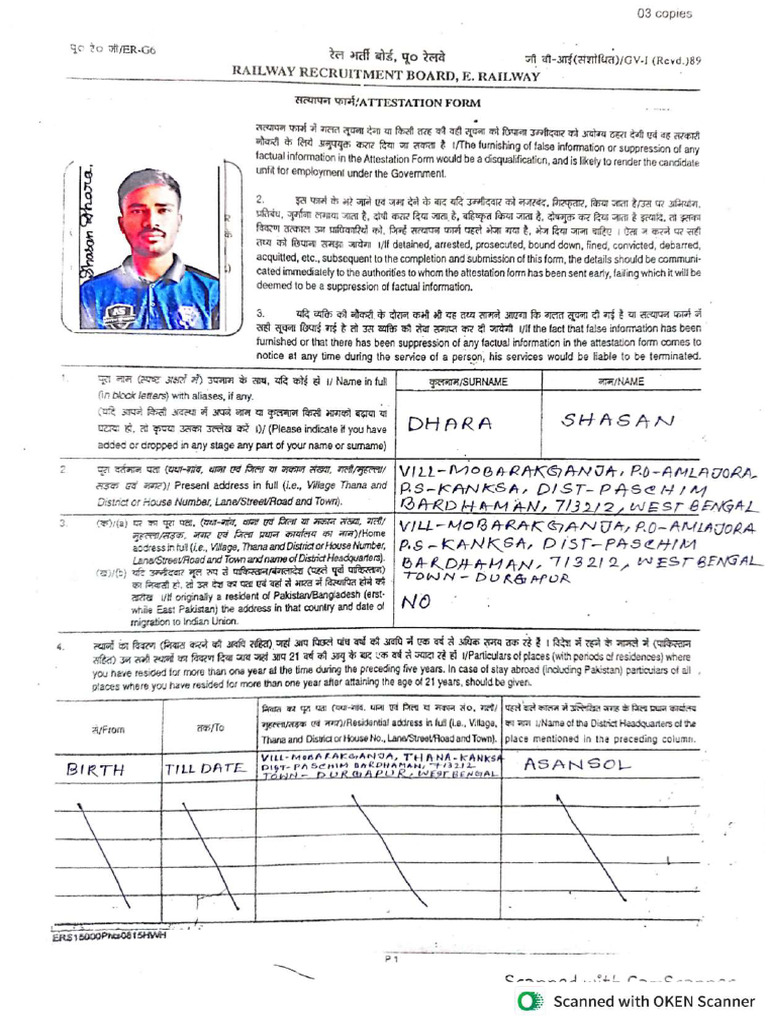 03 copies
पू० रे० जी/ER-G6
रेल भर्ती बोर्ड, पू० रेलवे
जी वी-आई(संशोधित)/GV-I (Revd.)89
RAILWAY RECRUITMENT BOARD, E. RAILWAY
सत्यापन फार्म/ATTESTATION FORM
सत्यापन फार्म में गलत सूचना देना या किसी तरह की वही सूचना को छिपाना उम्मीदवार को अयोग्य ठहरा देगी एवं वह सरकारी
नौकरी के लिये अनुपयुक्त करार दिया जा सकता है ।/The furnishing of false information or suppression of any
factual information in the Attestation Form would be a disqualification, and is likely to render the candidate
unfit for employment under the Government.
Shasan Dhara.
AS
2. इस फार्म के भरे जाने एवं जमा देने के बाद यदि उम्मीदवार को नजरबंद, गिरफ्तार, किया जाता है/उस पर अभियोग,
प्रतिबंध, जुर्माना लगाया जाता है, दोषी करार दिया जाता है, बहिष्कृत किया जाता है, दोषमुक्त कर दिया जाता है इत्यादि, तो इसका
विवरण तत्काल उन प्राधिकारियों को, जिन्हें सत्यापन फार्म पहले भेजा गया है, भेज दिया जाना चाहिए । ऐसा न करने पर सही
तथ्य को छिपाना समझा जायेगा ।/If detained, arrested, prosecuted, bound down, fined, convicted, debarred,
acquitted, etc., subsequent to the completion and submission of this form, the details should be communi-
cated immediately to the authorities to whom the attestation form has been sent early, failing which it will be
deemed to be a suppression of factual information.
3. यदि व्यक्ति की नौकरी के दौरान कभी भी यह तथ्य सामने आएगा कि गलत सूचना दी गई है या सत्यापन फार्म में
सही सूचना छिपाई गई है तो उस व्यक्ति की सेवा समाप्त कर दी जायेगी ।/If the fact that false information has been
furnished or that there has been suppression of any factual information in the attestation form comes to
notice at any time during the service of a person, his services would be liable to be terminated.
1. पूरा नाम (स्पष्ट अक्षरों में) उपनाम के साथ, यदि कोई हो ।/ Name in full
(in block letters) with aliases, if any.
(यदि आपने किसी अवस्था में अपने नाम या कुलनाम किसी भागको बढ़ाया या
घटाया हो, तो कृपया उसका उल्लेख करें ।)/ (Please indicate if you have
added or dropped in any stage any part of your name or surname)
कुलनाम/SURNAME
नाम/NAME
DHARA
SHASAN
2. पूरा वर्तमान पता (यथा-गांव, थाना एवं जिला या मकान संख्या, गली/मुहल्ला/
सड़क एवं नगर)/ Present address in full (i.e., Village Thana and
District or House Number, Lane/Street/Road and Town).
VILL-MOBARAKGANJA, P.O-AMLAJORA
P.S-KANKSA, DIST-PASCHIM
BARDHAMAN, 713212, WEST BENGAL
3. (क)/(a) घर का पूरा पता, (यथा-गांव, थाना एवं जिला या मकान संख्या, गली/
मुहल्ला/सड़क, नगर एवं जिला प्रधान कार्यालय का नाम)/Home
address in full (i.e., Village, Thana and District or House Number,
Lane/Street/Road and Town and name of District Headquarters).
VILL-MOBARAKGANJA, P.O-AMLAJORA
P.S-KANKSA, DIST-PASCHIM
BARDHAMAN, 713212, WEST BENGAL
TOWN-DURGAPUR
(ख)/(b) यदि उम्मीदवार मूल रूप से पाकिस्तान/बंगलादेश (पहले पूर्वी पाकिस्तान)
का निवासी हो, तो उस देश का पता एवं वहां से भारत में विस्थापित होने की
तारीख ।/If originally a resident of Pakistan/Bangladesh (erst-
while East Pakistan) the address in that country and date of
migration to Indian Union.
NO
4. स्थानों का विवरण (निवास करने की अवधि सहित) जहां आप पिछले पांच वर्षों की अवधि में एक वर्ष से अधिक समय तक रहे हैं । विदेश में रहने के मामले में (पाकिस्तान
सहित) उन सभी स्थानों का विवरण दिया जाय जहां आप 21 वर्ष की आयु के बाद एक वर्ष से ज्यादा रहे हों ।/Particulars of places (with periods of residences) where
you have resided for more than one year at the time during the preceding five years. In case of stay abroad (including Pakistan) particulars of all
places where you have resided for more than one year after attaining the age of 21 years, should be given.
से/From
तक/To
निवास का पूरा पता (यथा-गांव, थाना एवं जिला या मकान सं०, गली/
मुहल्ला/सड़क एवं नगर)/Residential address in full (i.e., Village,
Thana and District or House No., Lane/Street/Road and Town).
पहले वाले कालम में उल्लिखित जगह के जिला प्रधान कार्यालय
का नाम ।/Name of the District Headquarters of the
place mentioned in the preceding column.
BIRTH
TILL DATE
VILL-MOBARAKGANJA, THANA-KANKSA
DIST-PASCHIM BARDHAMAN, 713212
TOWN-DURGAPUR, WEST BENGAL
ASANSOL
P 1
Scanned with OKEN Scanner